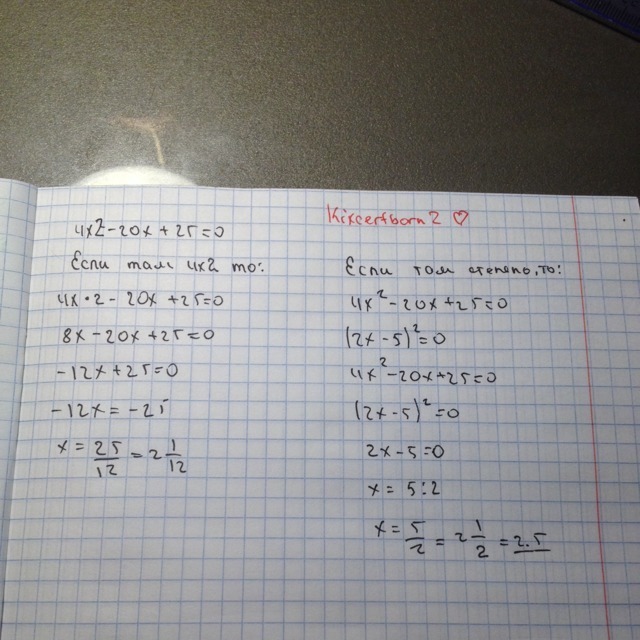 Kixcertborn2 ♡
4x2-20x+25=0
Если там 4x2 то:
4x•2-20x+25=0
8x-20x+25=0
-12x+25=0
-12x=-25
x=25/12=2 1/12
Если том степень,то:
4x²-20x+25=0
(2x-5)²=0
4x²-20x+25=0
(2x-5)²=0
2x-5=0
x=5:2
x=5/2=2 1/2=2.5